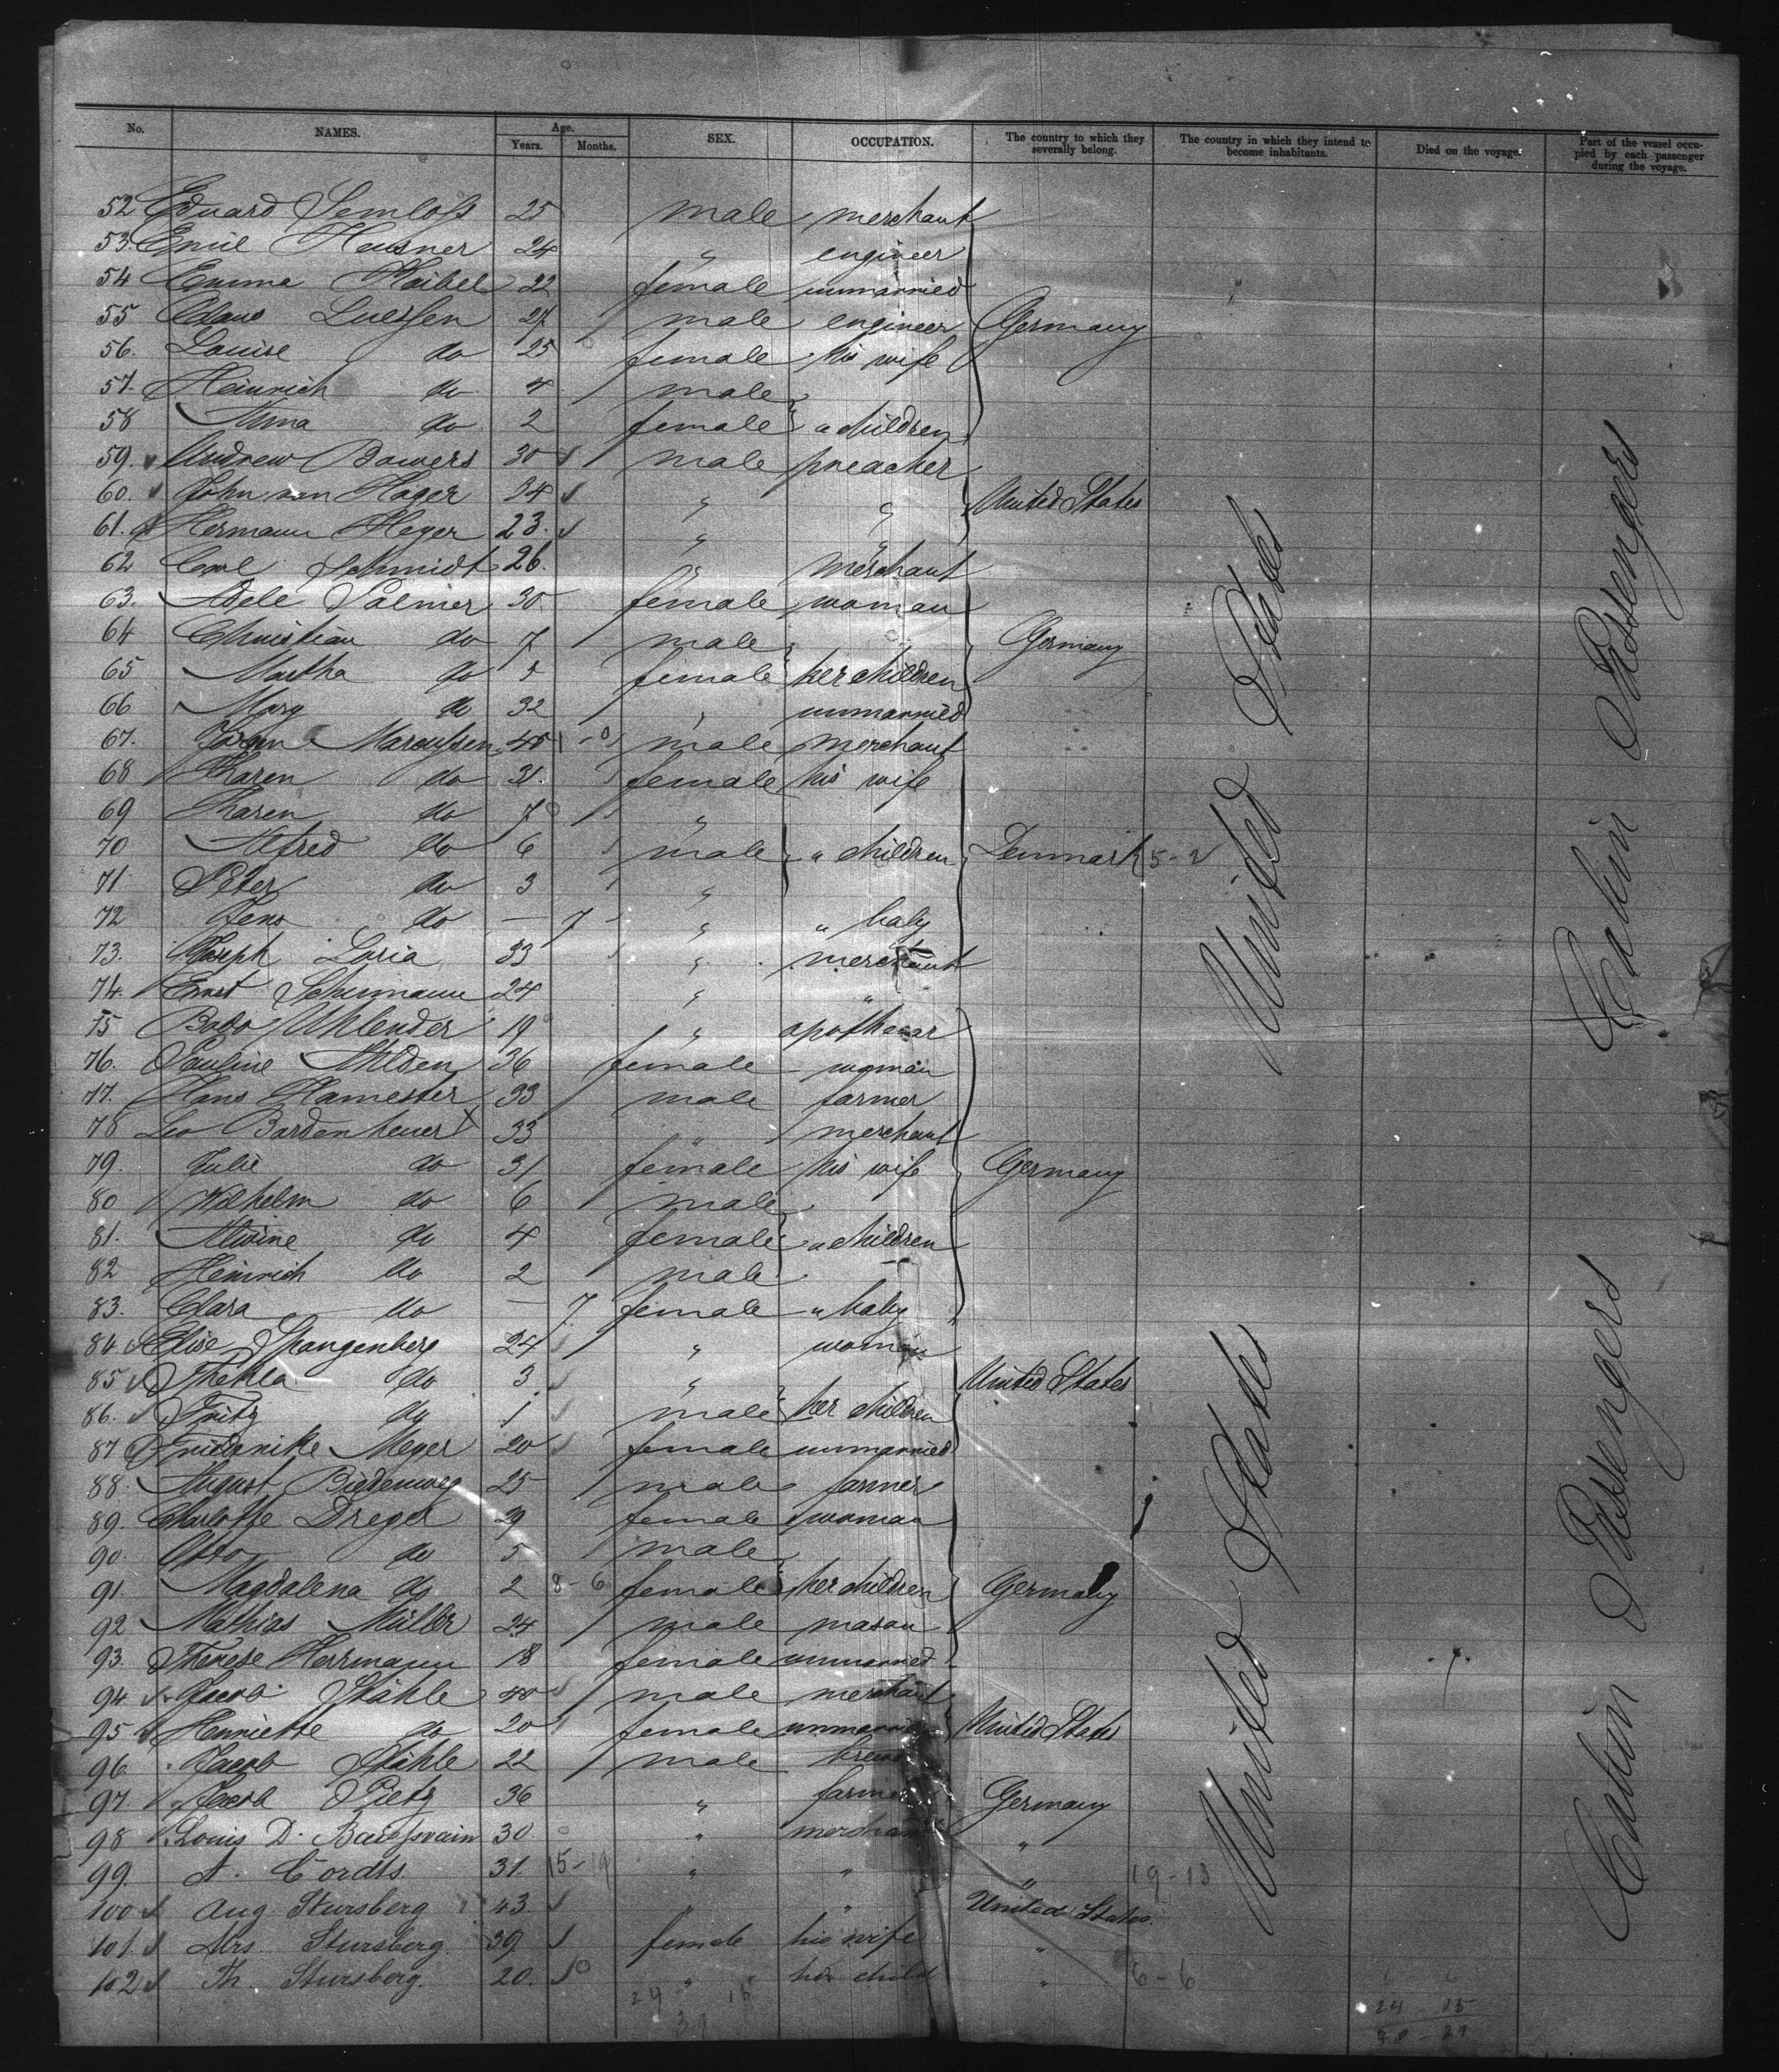 No. NAMES. Age. Years. Months. SEX. OCCUPATION. The country to which they severally belong. The country in which they intend to become inhabitants. Died on the voyage. Part of the vessel occupied by each passenger during the voyage.
52 Eduard Semloß 25 male merchant
53. Emil Heusner 24 " engineer
54 Emma Haibel 22 female unmarried
55 Claus Luessen 27 male engineer Germany
56. Louise do 25 female his wife
57. Heinrich do 4 male
58 Anna do 2 female " children
59. Andrew Bowers 30 male preacher
60. John von Hager 34 " " United States
61. Hermann Heyer 23. " "
62 Carl Schmidt 26. " merchant
63. Adele Palmer 30 female woman
64 Christian do 7 male Germany
65 Martha do female her children
66 Mary do 32 " unmarried
67. Marcussen 45 male merchant
68 Karen do 31. female his wife
69 Karen do 7 "
70 Alfred do 6 male " children Denmark 5-2
71 Peter do 3 "
72 Jens do — 7 " " baby
73. Joseph Loria 33 " merchant
74. Ernst Schumann 24 " "
75 Bodo Uhlender 19 "
76. Pauline Ahlden 36 female woman
77. Hans Hamester 33 male farmer
78 Leo Bardenheuer X 33 " merchant
79. Julie do 31 female his wife Germany
80 Wilhelm do 6 male
81. Alwine do 4 female " children
82 Heinrich do 2 male
83. Clara do — 7 female " baby
84 Elise Spangenberg 24 " woman
85 Thekla do 3 " United States
86. Fritz do 1 male her children
87 Friderike Meyer 20 female unmarried
88. August Biedenweg 25 male farmer
89. Charlotte Dreger 29 female woman
90. Otto do 5 male
91. Magdalena do 2 8-6 female her children Germany
92 Mathias Müller 24 male mason
93. Therese Herrmann 18 female unmarried
94. Jacob Stähle 40 male merchant
95 Henriette do 20 female unmarried United States
96 Jacob Stähle 22 male
97. Jacob Pietz 36 " farmer Germany
98 Louis D. 30. " merchant "
99. A. Cordts. 31. 15-19 " " " 19-13
100 Aug Stursberg 43. " " United States.
101 Mrs. Stursberg. 39 female his wife "
102 Th. Stursberg. 20. " her child " 6-6
United States
Cabin Passengers
United States
Cabin Passengers
24 15
39
24-15